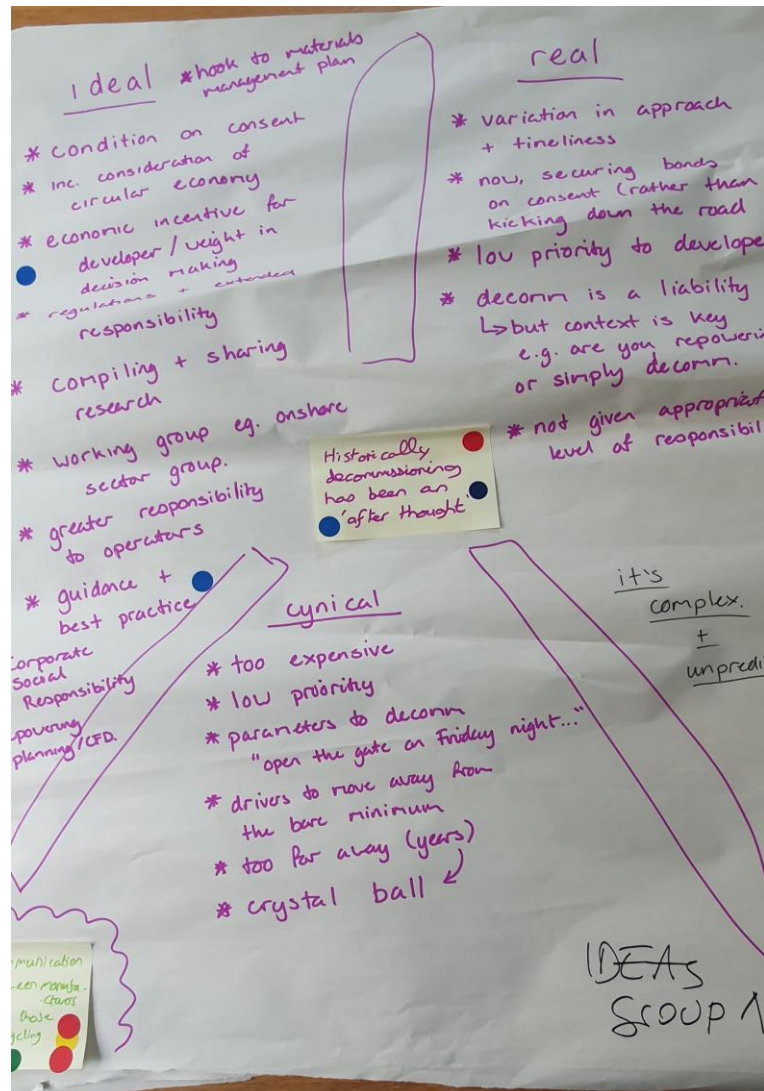 ideal
* hook to materials
management plan
* condition on consent
* inc. consideration of
circular economy
* economic incentive for
developer / weight in
decision making
* regulations + extended
responsibility
* compiling + sharing
research
* working group eg. onshore
sector group.
* greater responsibility
to operators
* guidance +
best practice
Corporate
Social
Responsibility
powering
planning/CFD.
real
* variation in approach
+ timeliness
* now, securing bonds
on consent (rather than
kicking down the road
* low priority to develope
* decomm is a liability
↳ but context is key
e.g. are you repoweri
or simply decomm.
* not given appropriat
level of responsibil
Historically,
decommissioning
has been an
'after thought'
it's
complex.
+
unpredi
cynical
* too expensive
* low priority
* parameters to decomm
"open the gate on Friday night..."
* drivers to move away from
the bare minimum
* too far away (years)
* crystal ball
munication
een manufa-
cturers
those
ycling
IDEAS
Group 1